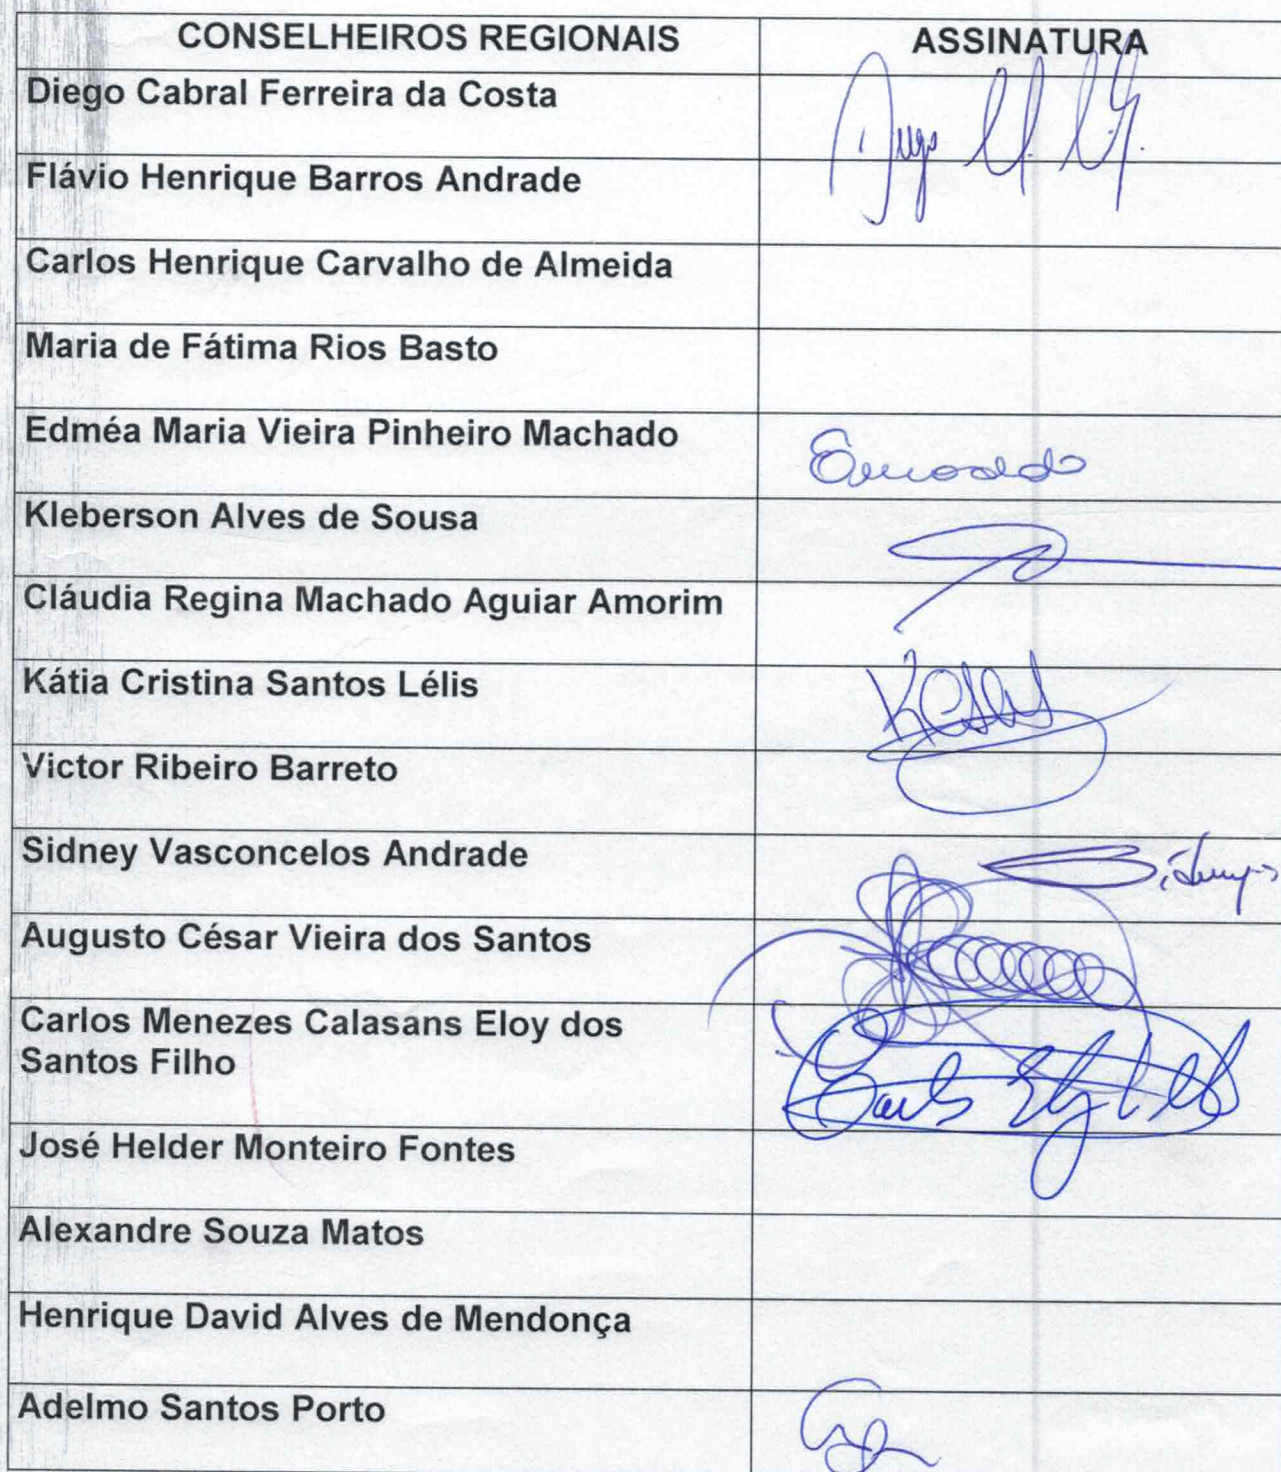 CONSELHEIROS REGIONAIS ASSINATURA
Diego Cabral Ferreira da Costa
Flávio Henrique Barros Andrade
Carlos Henrique Carvalho de Almeida
Maria de Fátima Rios Basto
Edméa Maria Vieira Pinheiro Machado
Kleberson Alves de Sousa
Cláudia Regina Machado Aguiar Amorim
Kátia Cristina Santos Lélis
Victor Ribeiro Barreto
Sidney Vasconcelos Andrade
Augusto César Vieira dos Santos
Carlos Menezes Calasans Eloy dos
Santos Filho
José Helder Monteiro Fontes
Alexandre Souza Matos
Henrique David Alves de Mendonça
Adelmo Santos Porto